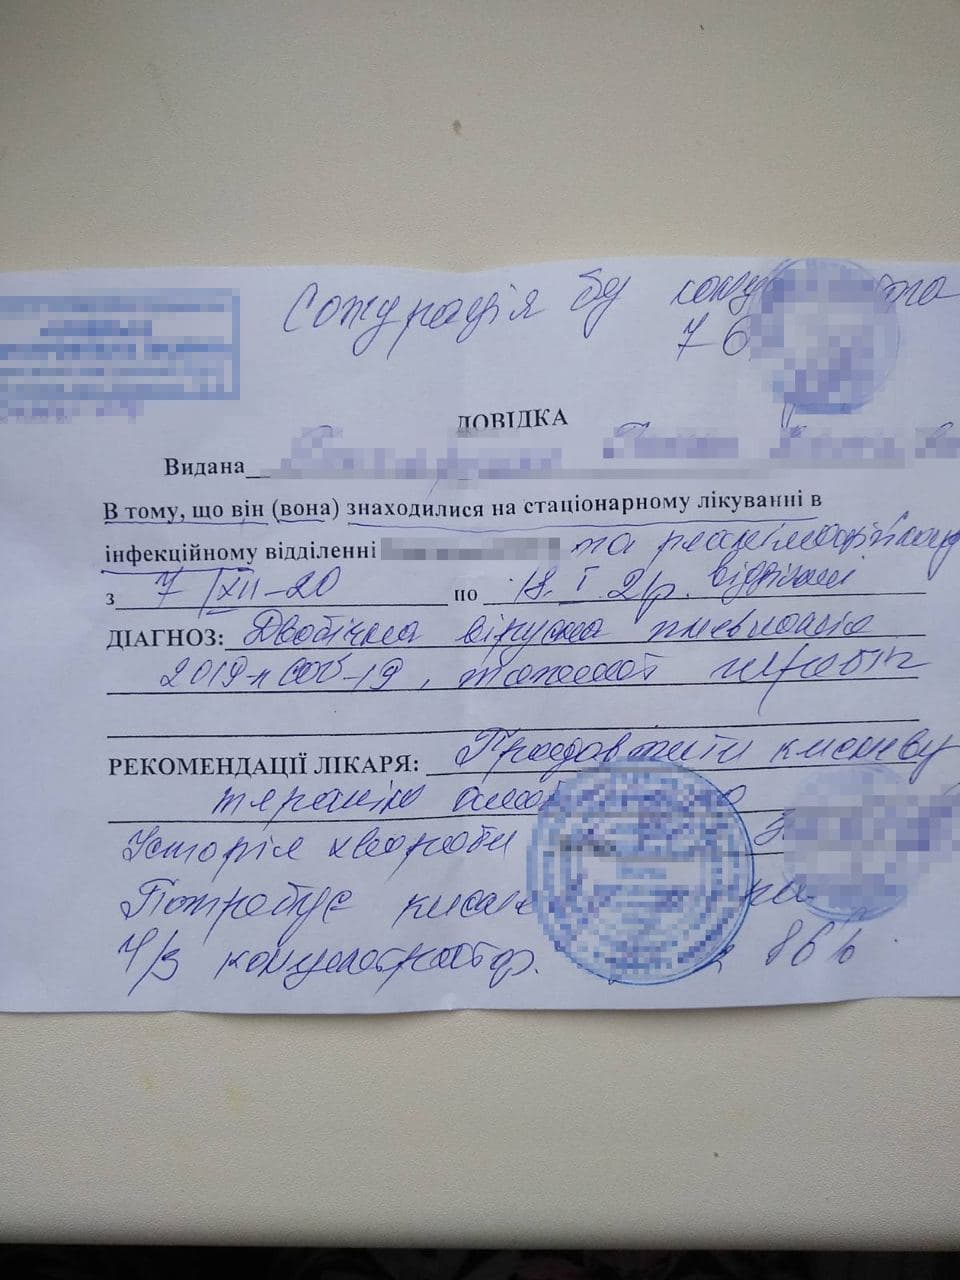 Сатурація бу
76
ДОВІДКА
Видана
В тому, що він (вона) знаходилися на стаціонарному лікуванні в
інфекційному відділенні та реанімаційному
з 7/XII-20 по 18. I. 21р. відділені
ДІАГНОЗ: Двобічна вірусна пневмонія
2019-n COV-19, тяжкий перебіг
РЕКОМЕНДАЦІЇ ЛІКАРЯ: Продовжити кисневу
терапію
Історія хвороби
Потребує
ч/з концентратор. 86%